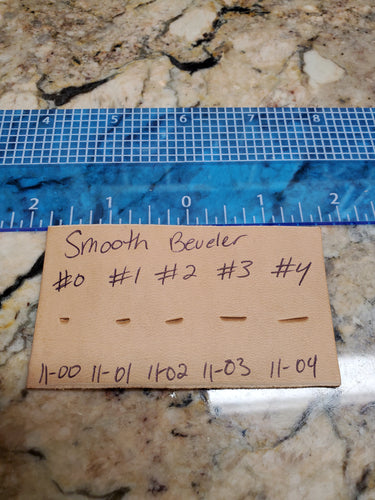 4 5 6 7 8
2 1 0 1 2
Smooth Beveler
#0 #1 #2 #3 #4
11-00 11-01 11-02 11-03 11-04